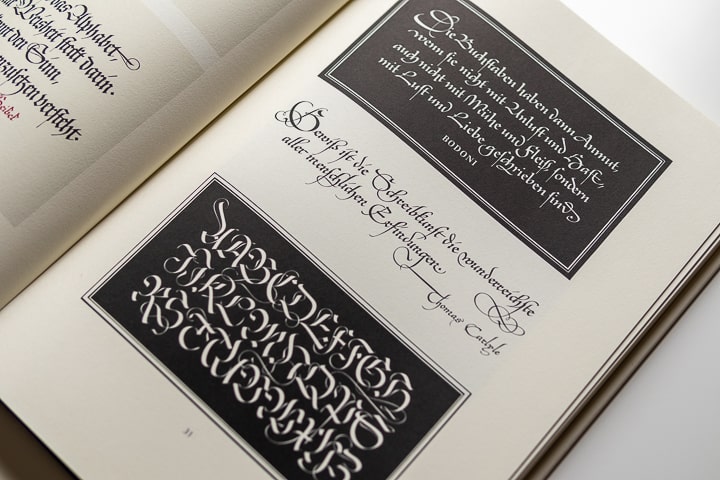 Alphabet,
Weisheit steckt darin.
den Sinn,
versteht.
Die Buchstaben haben dann Anmut,
wenn sie nicht mit Unlust und Hast,
auch nicht mit Mühe und Fleiß sondern
mit Lust und Liebe geschrieben sind
BODONI
Gewiß ist die Schreibkunst die wunderreichste
aller menschlichen Erfindungen.
Thomas Carlyle
ABCDEFGH
31